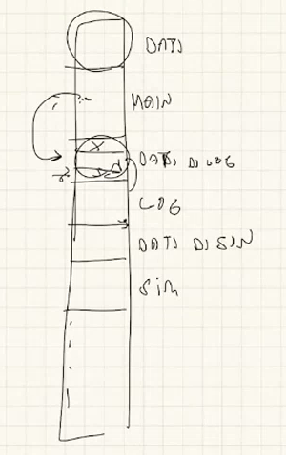 DATI
MAIN
X
DATI DI LOG
LOG
DATI DI SIN
SIN